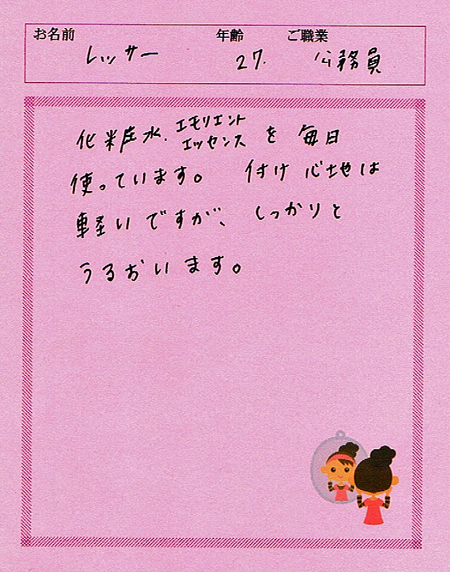 お名前 年齢 ご職業
レッサー 27. 公務員
化粧水.エモリエントエッセンスを毎日
使っています。 付け心地は
軽いですが、しっかりと
うるおいます。